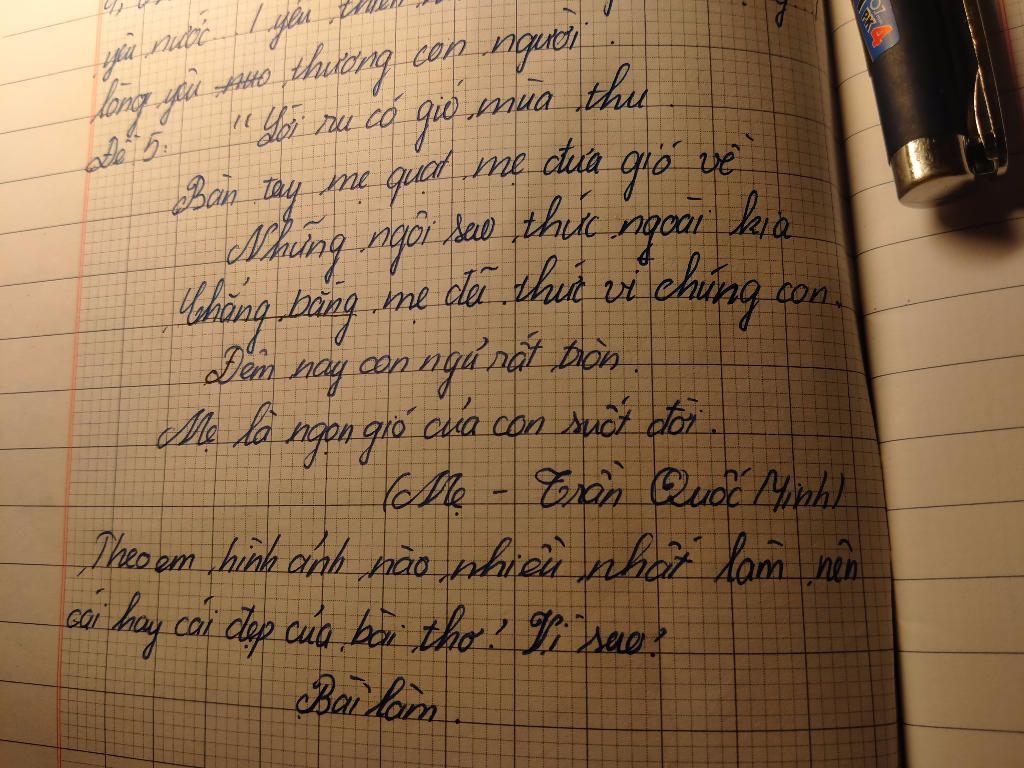 yêu nước. 1 yêu thiên
lòng yêu thương con người.
Đề 5: "Lời ru có gió mùa thu
Bàn tay mẹ quạt mẹ đưa gió về
Những ngôi sao thức ngoài kia
Chẳng bằng mẹ đã thức vì chúng con.
Đêm nay con ngủ rất tròn.
Mẹ là ngọn gió của con suốt đời.
(Mẹ - Trần Quốc Minh)
Theo em hình ảnh nào nhiều nhất làm nên
cái hay cái đẹp của bài thơ? Vì sao?
Bài làm.